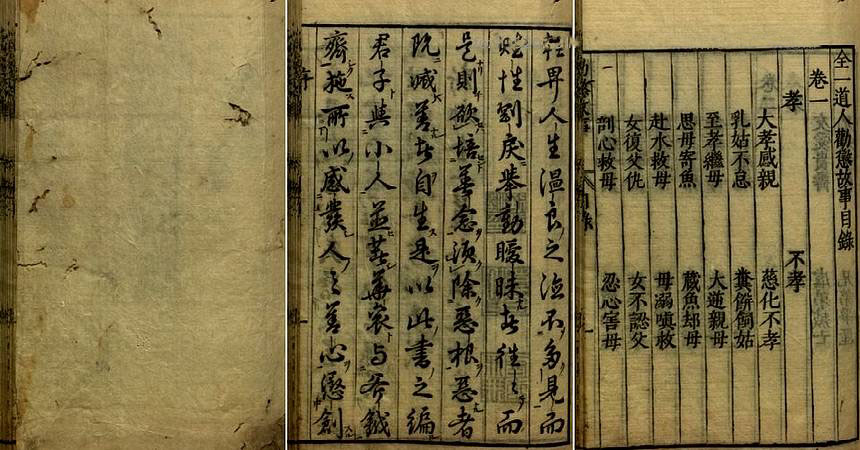 畀人生温良之徳不多見而
賦性剛戾舉動曖昧者往〻而
是則欲培善念須除惡根惡者
既滅善者自生是以此書之編
君子與小人並載華衮与斧鉞
齊施所以感發人之善心懲創
序
全一道人勸懲故事目錄
卷一
孝 不孝
大孝感親 慈化不孝
乳姑不怠 糞餅飼姑
至孝繼母 大逆親母
思母寄魚 藏魚却母
赴水救母 母溺嗔救
女復父仇 女不認父
剖心救母 忍心害母